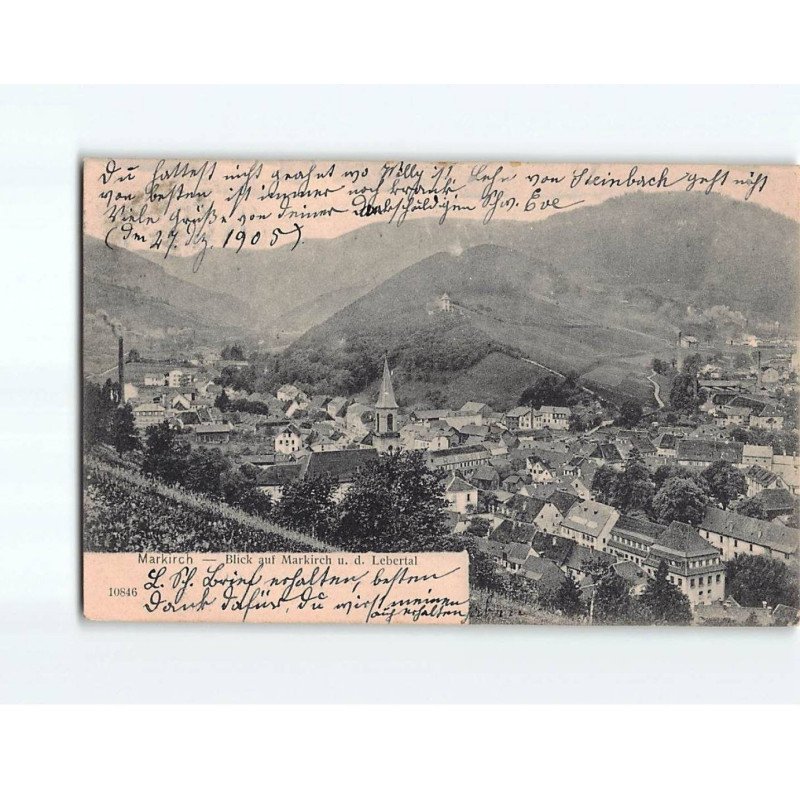 Du hattest nicht geahnt wo Willy ist. Lehr von Steinbach geht näht
von besten ist immer noch krank
Viele Grüße von deiner Schw. Eve
(den 27. Dz. 1905).
Markirch — Blick auf Markirch u. d. Lebertal
10846
L. Sch. Brief erhalten, besten
Dank dafür, du wirst meinen
auch erhalten